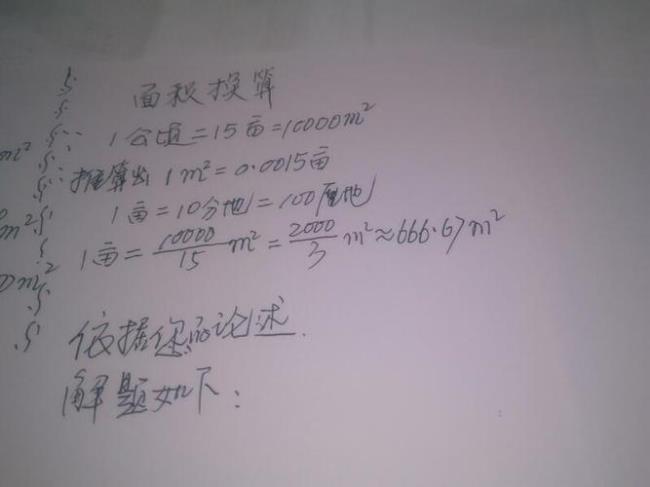 面积换算
1公顷=15亩=10000m²
m²
推算出 1m²=0.0015亩
1亩=10分地=100厘地
m²
1亩=10000/15 m²=2000/3 m²≈666.67m²
m²
依据您的论述.
解题如下: